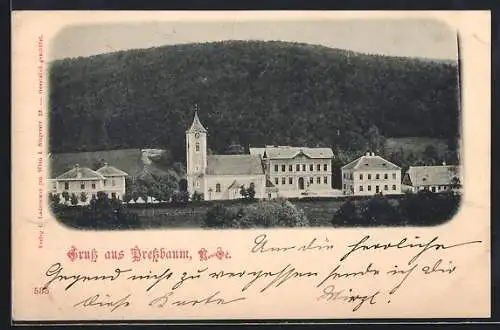 Verlag C. Ledermann jun. Wien I. Fleischmarkt 12. — Gesetzlich geschützt.
Gruß aus Preßbaum, N.-Oe.
Um die herrliche
Gegend nicht zu vergessen sende ich Dir
diese Karte
Mirzl.
535